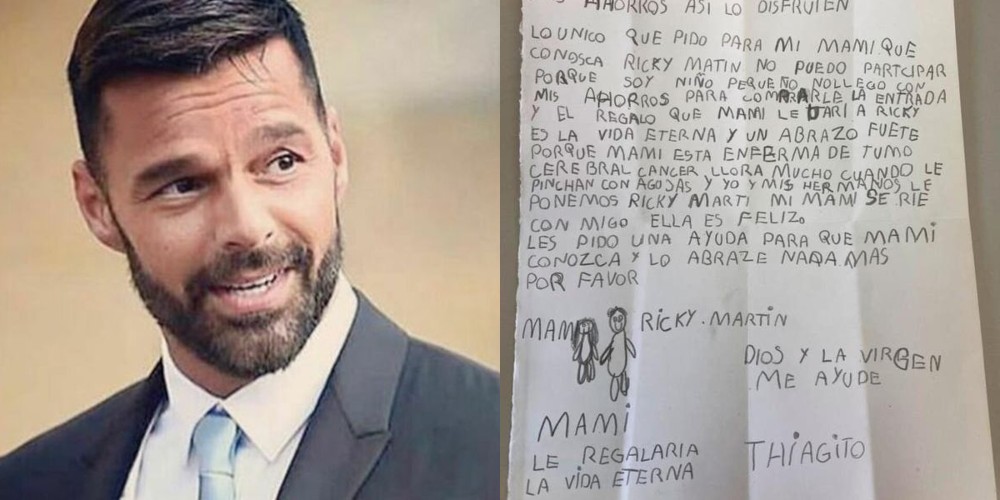 AHORROS ASI LO DISFRUTEN
LO UNICO QUE PIDO PARA MI MAMI QUE
CONOSCA RICKY MATIN NO PUEDO PARTCIPAR
PORQUE SOY NIÑO PEQUEÑO NOLLEGO CON
MIS AHORROS PARA COMPRARLE LA ENTRADA
Y EL REGALO QUE MAMI LE DARI A RICKY
ES LA VIDA ETERNA Y UN ABRAZO FUETE
PORQUE MAMI ESTA ENFERMA DE TUMO
CEREBRAL CANCER LLORA MUCHO CUANDO LE
PINCHAN CON AGUJAS Y YO Y MIS HERMANOS LE
PONEMOS RICKY MARTI MI MAMI SE RIE
CON MIGO ELLA ES FELIZ.
LES PIDO UNA AYUDA PARA QUE MAMI
CONOZCA Y LO ABRAZE NADA MAS
POR FAVOR
MAMI RICKY.MARTIN
DIOS Y LA VIRGEN
ME AYUDE
MAMI
LE REGALARIA
LA VIDA ETERNA
THIAGITO